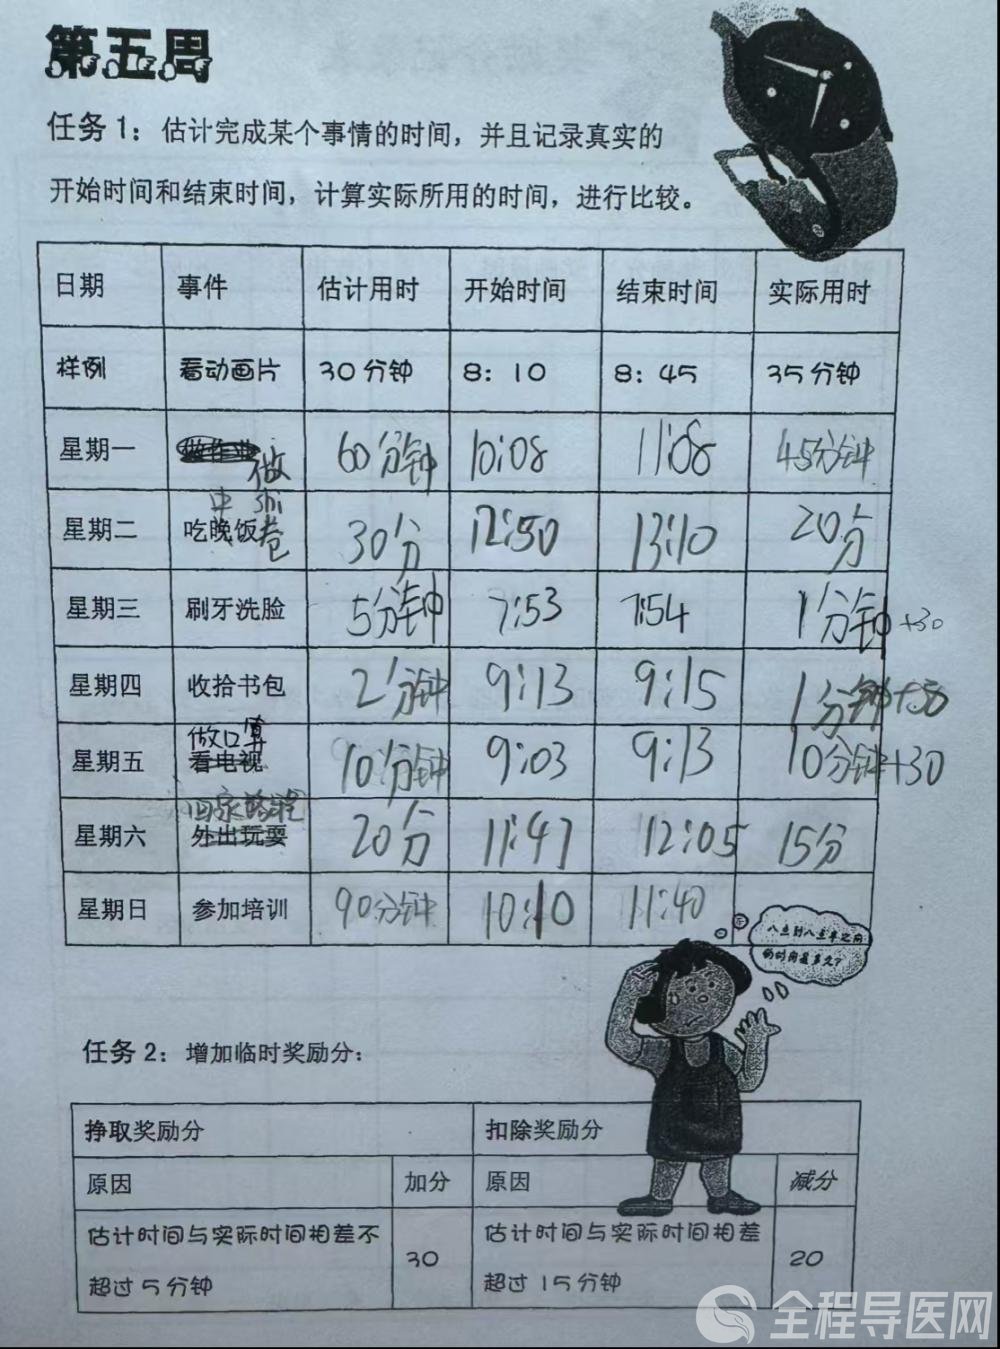 第五周
任务1：估计完成某个事情的时间，并且记录真实的
开始时间和结束时间，计算实际所用的时间，进行比较。
日期 事件 估计用时 开始时间 结束时间 实际用时
样例 看动画片 30分钟 8：10 8：45 35分钟
星期一 做 60分钟 10:08 11:08 45分钟
星期二 吃晚饭 卷 30分 12:50 13:10 20分
星期三 刷牙洗脸 5分钟 7:53 7:54 1分钟+30
星期四 收拾书包 2分钟 9:13 9:15 1分钟+30
做口算
星期五 看电视 10分钟 9:03 9:13 10分钟+30
回家路程
星期六 外出玩耍 20分 11:47 12:05 15分
星期日 参加培训 90分钟 10:10 11:40
八点到八点半之间
的时间是多久？
任务2：增加临时奖励分：
挣取奖励分 扣除奖励分
原因 加分 原因 减分
估计时间与实际时间相差不
超过5分钟
30
估计时间与实际时间相差
超过15分钟
20
全程导医网